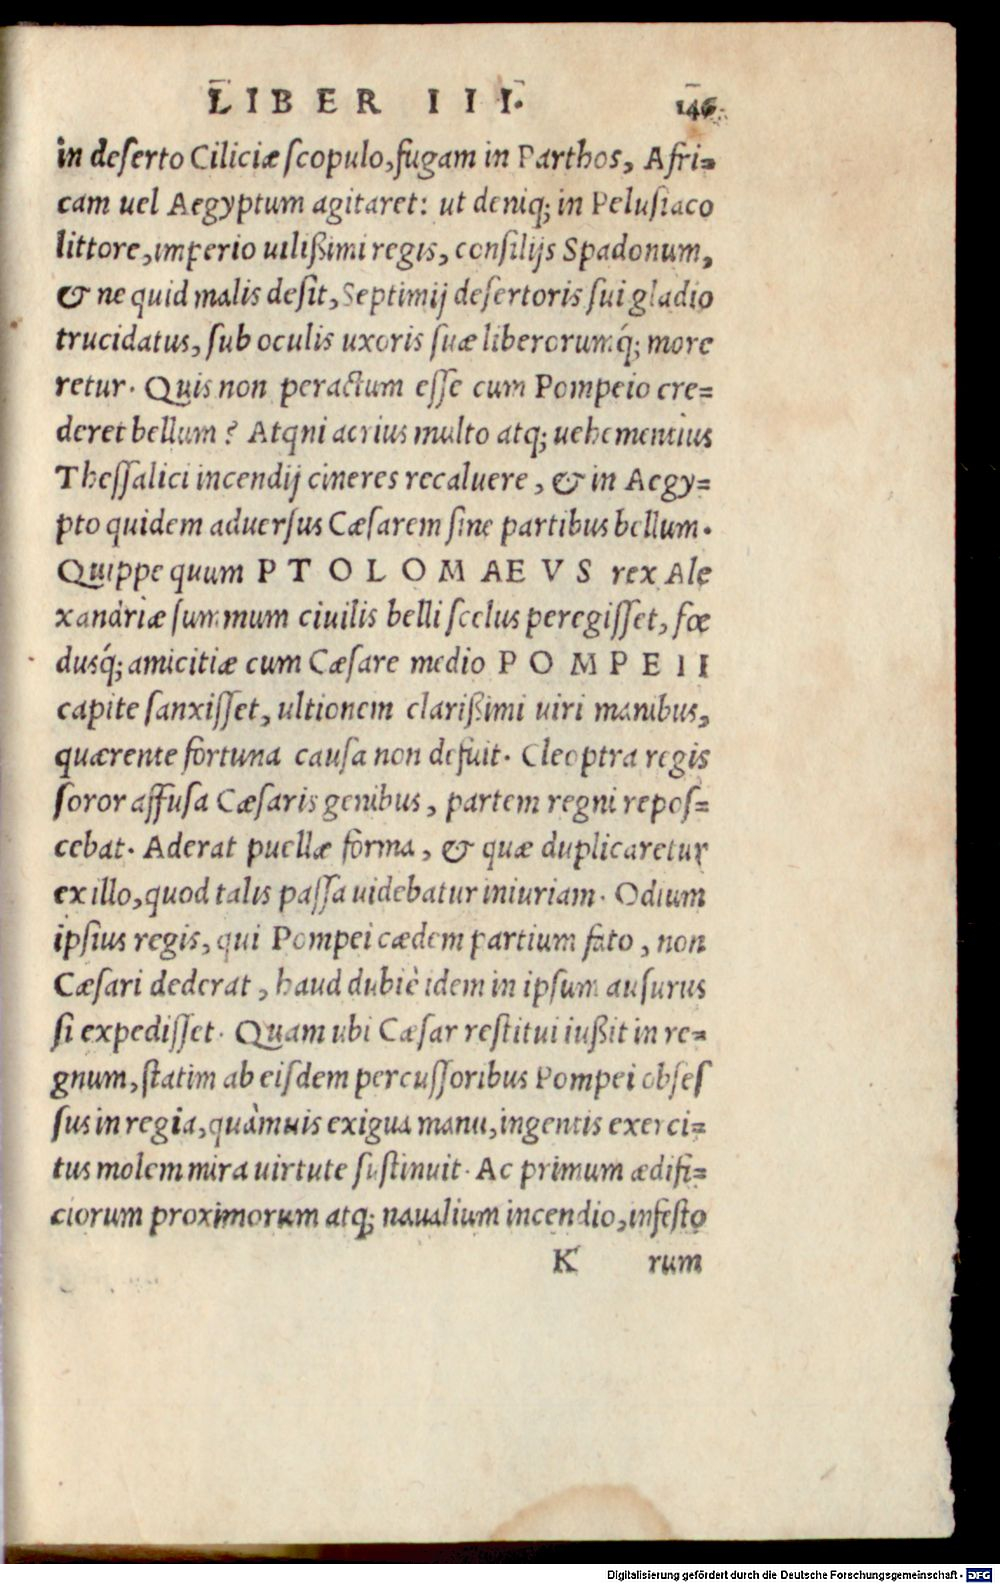 LIBER III.
146
in deserto Ciliciæ scopulo, fugam in Parthos, Afri=
cam uel Aegyptum agitaret: ut deniq; in Pelusiaco
littore, imperio uilißimi regis, consilijs Spadonum,
& ne quid malis desit, Septimij desertoris sui gladio
trucidatus, sub oculis uxoris suæ liberorumq́; more
retur. Quis non peractum esse cum Pompeio cre=
deret bellum? Atqni acrius multo atq; uehementius
Thessalici incendij cineres recaluere, & in Aegy=
pto quidem aduersus Cæsarem sine partibus bellum.
Quippe quum PTOLOMAEVS rex Ale
xandriæ summum ciuilis belli scelus peregisset, fœ
dusq́; amicitiæ cum Cæsare medio POMPEII
capite sanxisset, ultionem clarißimi uiri manibus,
quærente fortuna causa non defuit. Cleoptra regis
soror affusa Cæsaris genibus, partem regni repos=
cebat. Aderat puellæ forma, & quæ duplicaretur
ex illo, quod talis passa uidebatur iniuriam. Odium
ipsius regis, qui Pompei cædem partium fato, non
Cæsari dederat, haud dubiè idem in ipsum ausurus
si expedisset. Quam ubi Cæsar restitui iußit in re=
gnum, statim ab eisdem percussoribus Pompei obses
sus in regia, quàmuis exigua manu, ingentis exerci=
tus molem mira uirtute sustinuit. Ac primum ædifi=
ciorum proximorum atq; naualium incendio, infesto
K rum
Digitalisierung gefördert durch die Deutsche Forschungsgemeinschaft - DFG